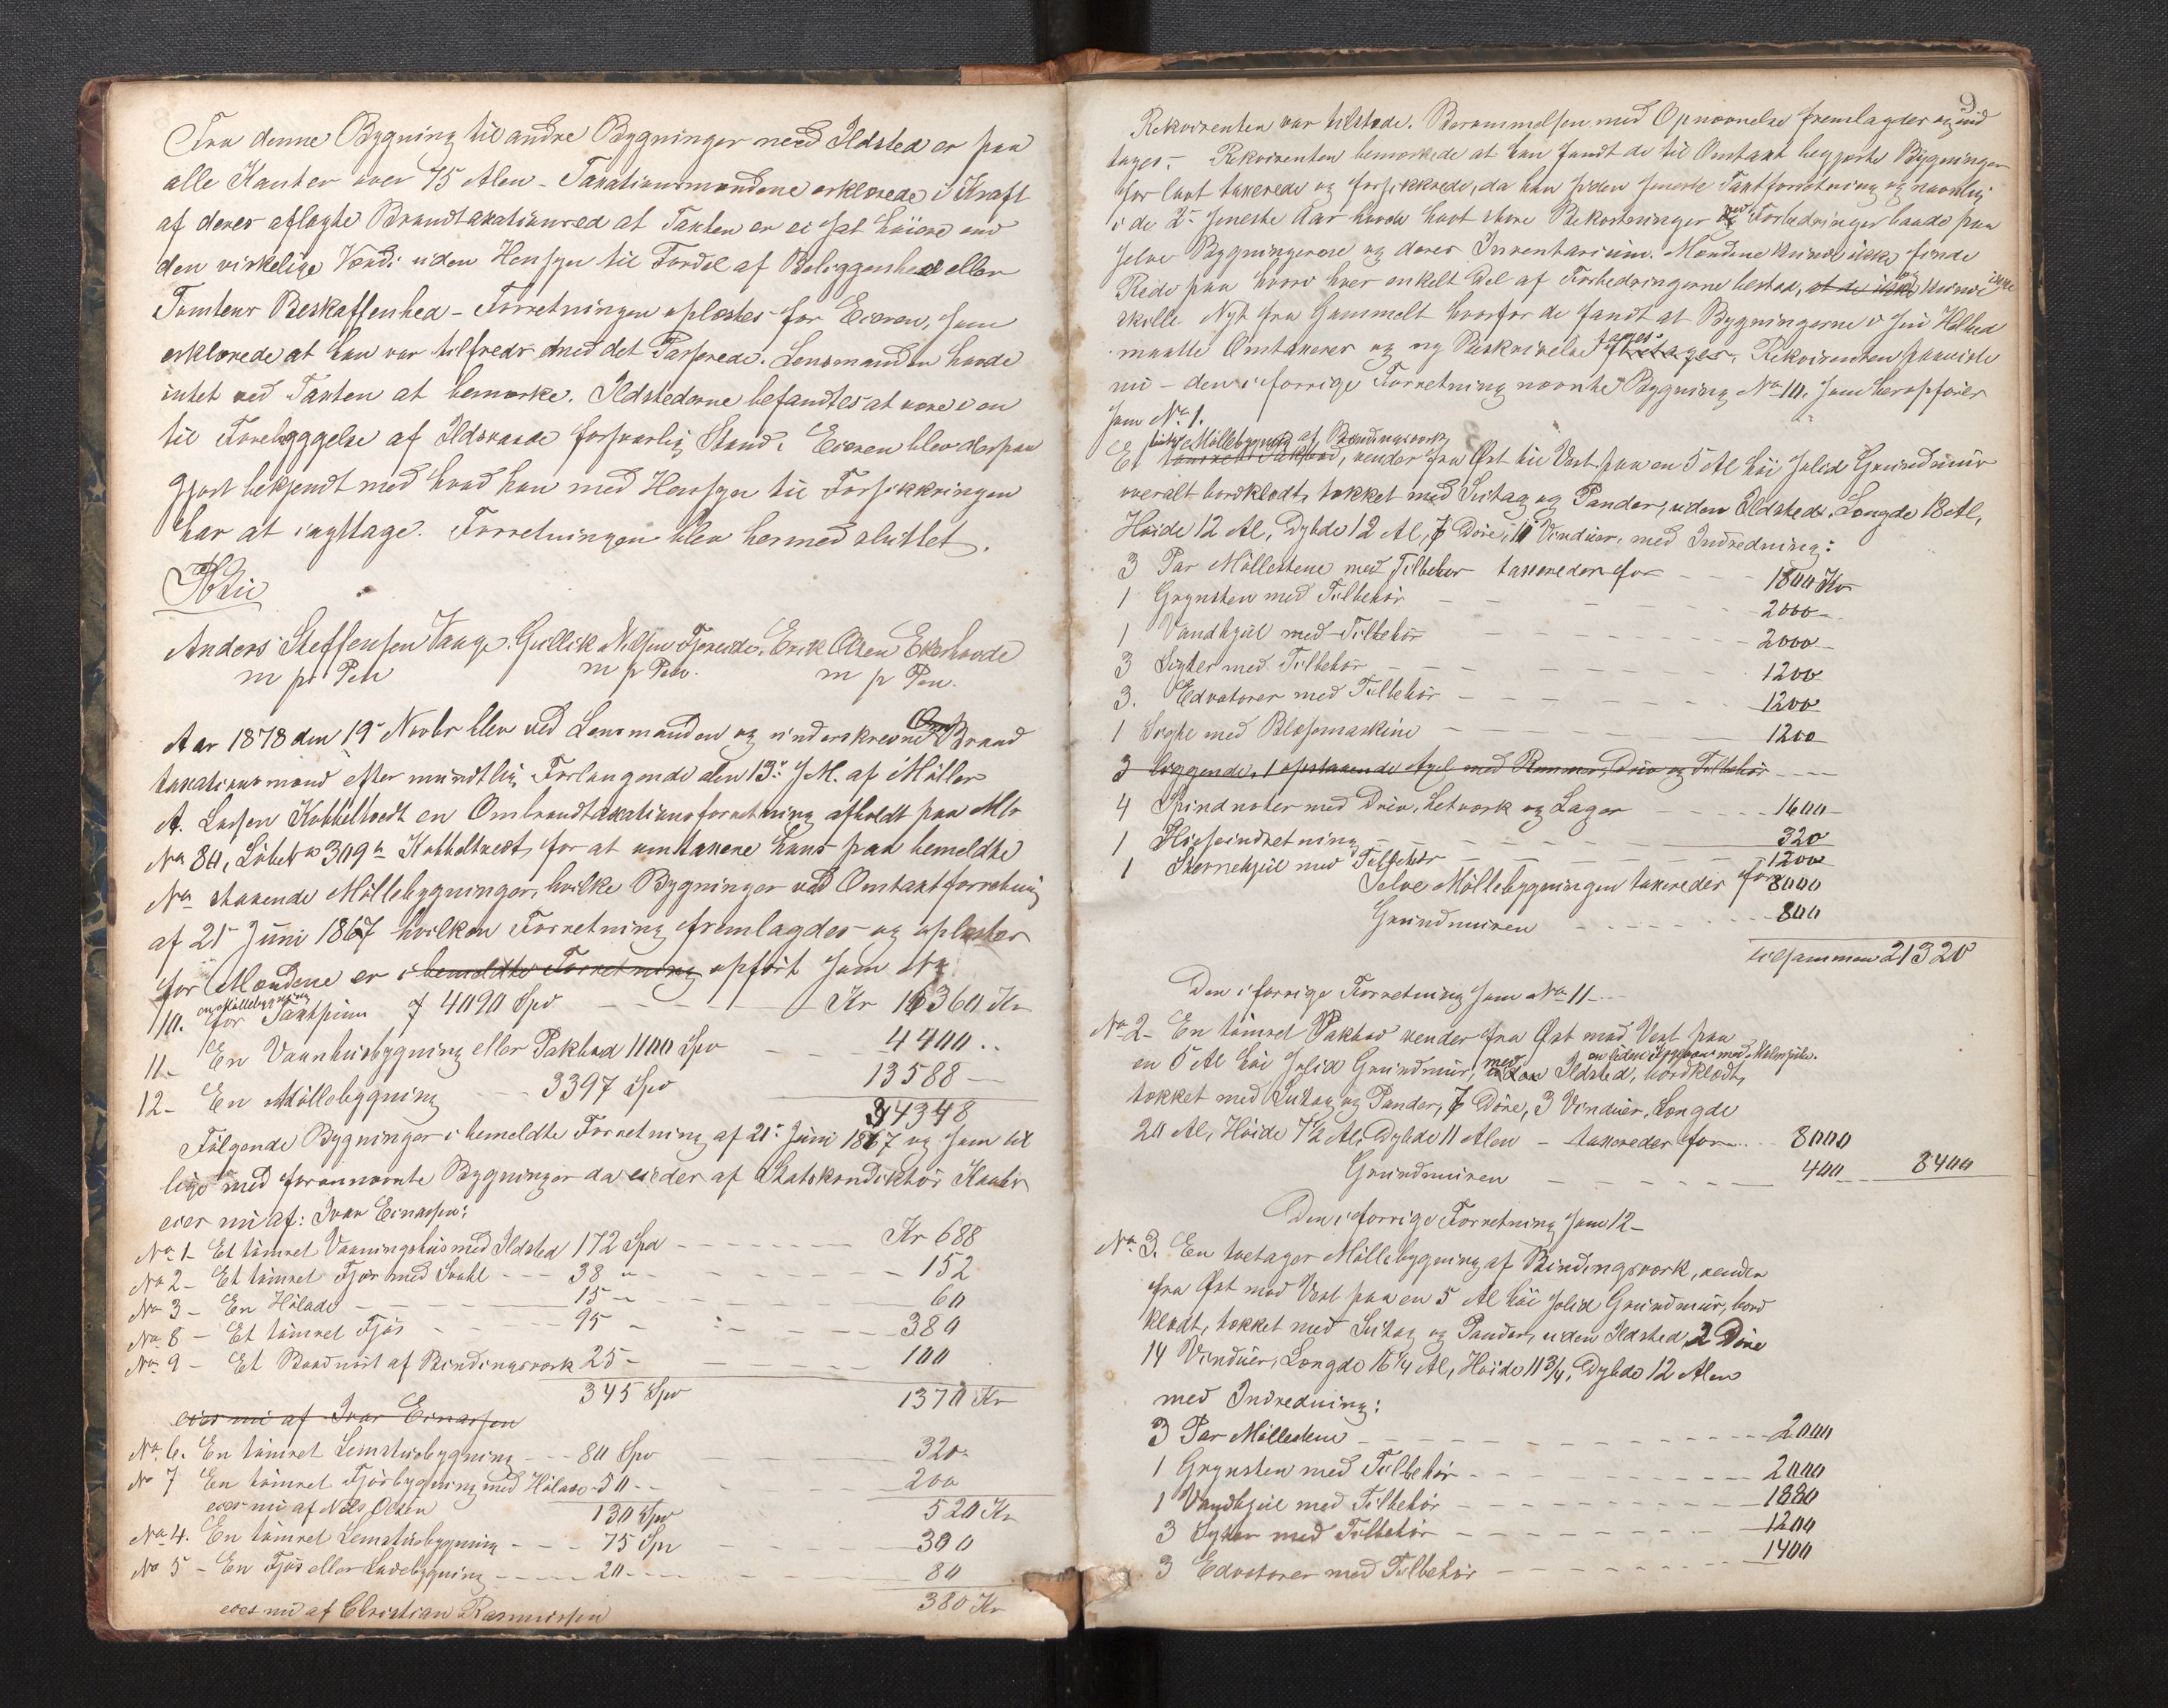 Fra denne Bygning til andre Bygninger med Ildsted er paa
alle Kanter over 75 Alen – Taxationsmændene erklærede i Kraft
af deres aflagte Brandtaxationsed at Taxten er ei sat høiere end
den virkelige Værdi uden Hensyn til Fordel af Beliggenhed eller
Tomtens Beskaffenhed – Forretningen oplæstes for Eieren, som
erklærede at han var tilfreds med det Passerede. Lensmanden havde
intet ved Taxten at bemærke. Ildstederne befandtes at være i en
til Forebyggelse af Ildsvaade forsvarlig Stand. Eieren blev derpaa
gjort bekjendt med hvad han med Hensyn til Forsikkringen
har at iagttage. Forretningen blev hermed sluttet.
Anders Steffensen Vange. Gullik Nilsen Erik Olsen
m p Pen m p Pen. m p Pen.
Aar 1878 den 19 Novbr blev ved Lensmanden og underskrevne Brand
taxationsmænd efter mundtlig Forlangende den 13. d. M. af Møller
A. Larsen Kvitheltvedt en Ombrandtaxationsforretning afholdt paa Mtr
No 80, Løbe No 309 a for at omtaxere hans paa bemeldte
No staaende Møllebygninger, hvilke Bygninger ved Omtaxtforretning
af 21 Juni 1867 hvilken Forretning fremlagdes og oplæstes
for Mændene er i bemeldte Forretning opført som No
10. en Møllebygning for Taxtsum 4090 Spd – Kr 16360 Kr
11. En Vaanhusbygning eller Pakbod 1100 Spd – 4400 ..
12 – En Møllebygning – 3397 Spd 13588 –
34348
Følgende Bygninger i bemeldte Forretning af 21. Juni 1867 og som til
lige med forannævnte Bygninger da eiedes af
eies nu af: Ivar Einarsen:
No 1 Et tømret Vaaningshus med Ildsted 172 Spd – Kr 688
No 2 – Et tømret Fjøs med Svahl – 38 " – 152
No 3 – En Hølade – 15 – 60
No 8 – Et tømret Fjøs – 95 – 380
No 9 – Et Baadnøst af Bindingsværk 25 – 100
345 Spd 1370 Kr
eies nu af Ivar Einarsen
No 6. En tømret Lemstuebygning – 80 Spd 320
No 7 En tømret Fjøsbygning med Hølade – 50 – 200
eies nu af Nils Olsen 130 Spd 520 Kr
No 4. En tømret Lemstuebygning – 75 Spd – 300
No 5 – En Fjøs eller Ladebygning – 20 – 80
eies nu af Christian Rasmussen 380 Kr
9
Rekvirenten var tilstede. Berammelsen med Opnævnelse fremlagdes og ind
tages. – Rekvirenten bemærkede at han fandt de til Omtaxt begjærte Bygninger
for lavt taxerede og forsikkrede, da han siden seneste Taxtforretning og navnlig
i de 2 seneste Aar havde havt store Bekostninger ved Forbedringer baade paa
selve Bygningerne og deres Inventarium. Mændene kunde ikke finde
Rede paa hvori hver enkelt Del af Forbedringerne bestod, at de ikke og kunde ikke
skille Nyt fra Gammelt hvorfor de fandt at Bygningerne i sin Helhed
maatte Omtaxeres og ny Beskrivelse tages. Rekvirenten paaviste
nu – den i forrige Forretning nævnte Bygning No 10. som her opføres
som No 1.
Møllebygning af Bindingsværk
Et tømret Pakbod, vender fra Øst til Vest paa en 5 Al høi solid Grundmur
overalt bordklædt, tækket med Sutag og Pander, uden Ildsted, Længde 18 Al,
Høide 12 Al, Dybde 12 Al, 7 Døre, 11 Vinduer, med Indredning:
3 Par Møllestene med Tilbehør taxeredes for – 1800 Kr
1 Grynsten med Tilbehør – 2000 –
1 Vandhjul med Tilbehør – 2000 –
3 Sigter med Tilbehør – 1200
3. Edvatorer med Tilbehør – 1200
1 Sigte med Blæsemaskine – 1200
3 liggende, 1 opstaaende Axel med Remmer, Driv og Tilbehør
4 Spindvoter med Driv, Letværk og Lager – 1600 –
1 Hiseindretning – 320
1 Stjernehjul med Tilbehør – 1200
Selve Møllebygningen taxeredes for 8000
Grundmuren – 800
tilsammen 21320
Den i forrige Forretning som No 11 –
No 2 – En tømret Pakbod vender fra Øst mod Vest paa
en 5 Al høi solid Grundmur, med Ildsted, bordklædt,
tækket med Sutag og Pander, 7 Døre, 3 Vinduer, Længde
20 Al, Høide 7½ Al, Dybde 11 Alen – taxeredes for – 8000
Grundmuren – 400 – 8400
Den i forrige Forretning som 12 –
No 3. En toetages Møllebygning af Bindingsværk, vender
fra Øst mod Vest paa en 5 Al høi solid Grundmur, bord
klædt, tækket med Sutag og Pander, uden Ildsted, 2 Døre
14 Vinduer, Længde 16¼ Al, Høide 11¾, Dybde 12 Alen
med Indredning:
3 Par Møllestene – 2000
1 Grynsten med Tilbehør – 2000
1 Vandhjul med Tilbehør – 1880
3 Sigter med Tilbehør – 1200
3 Edvatorer med Tilbehør – 1400